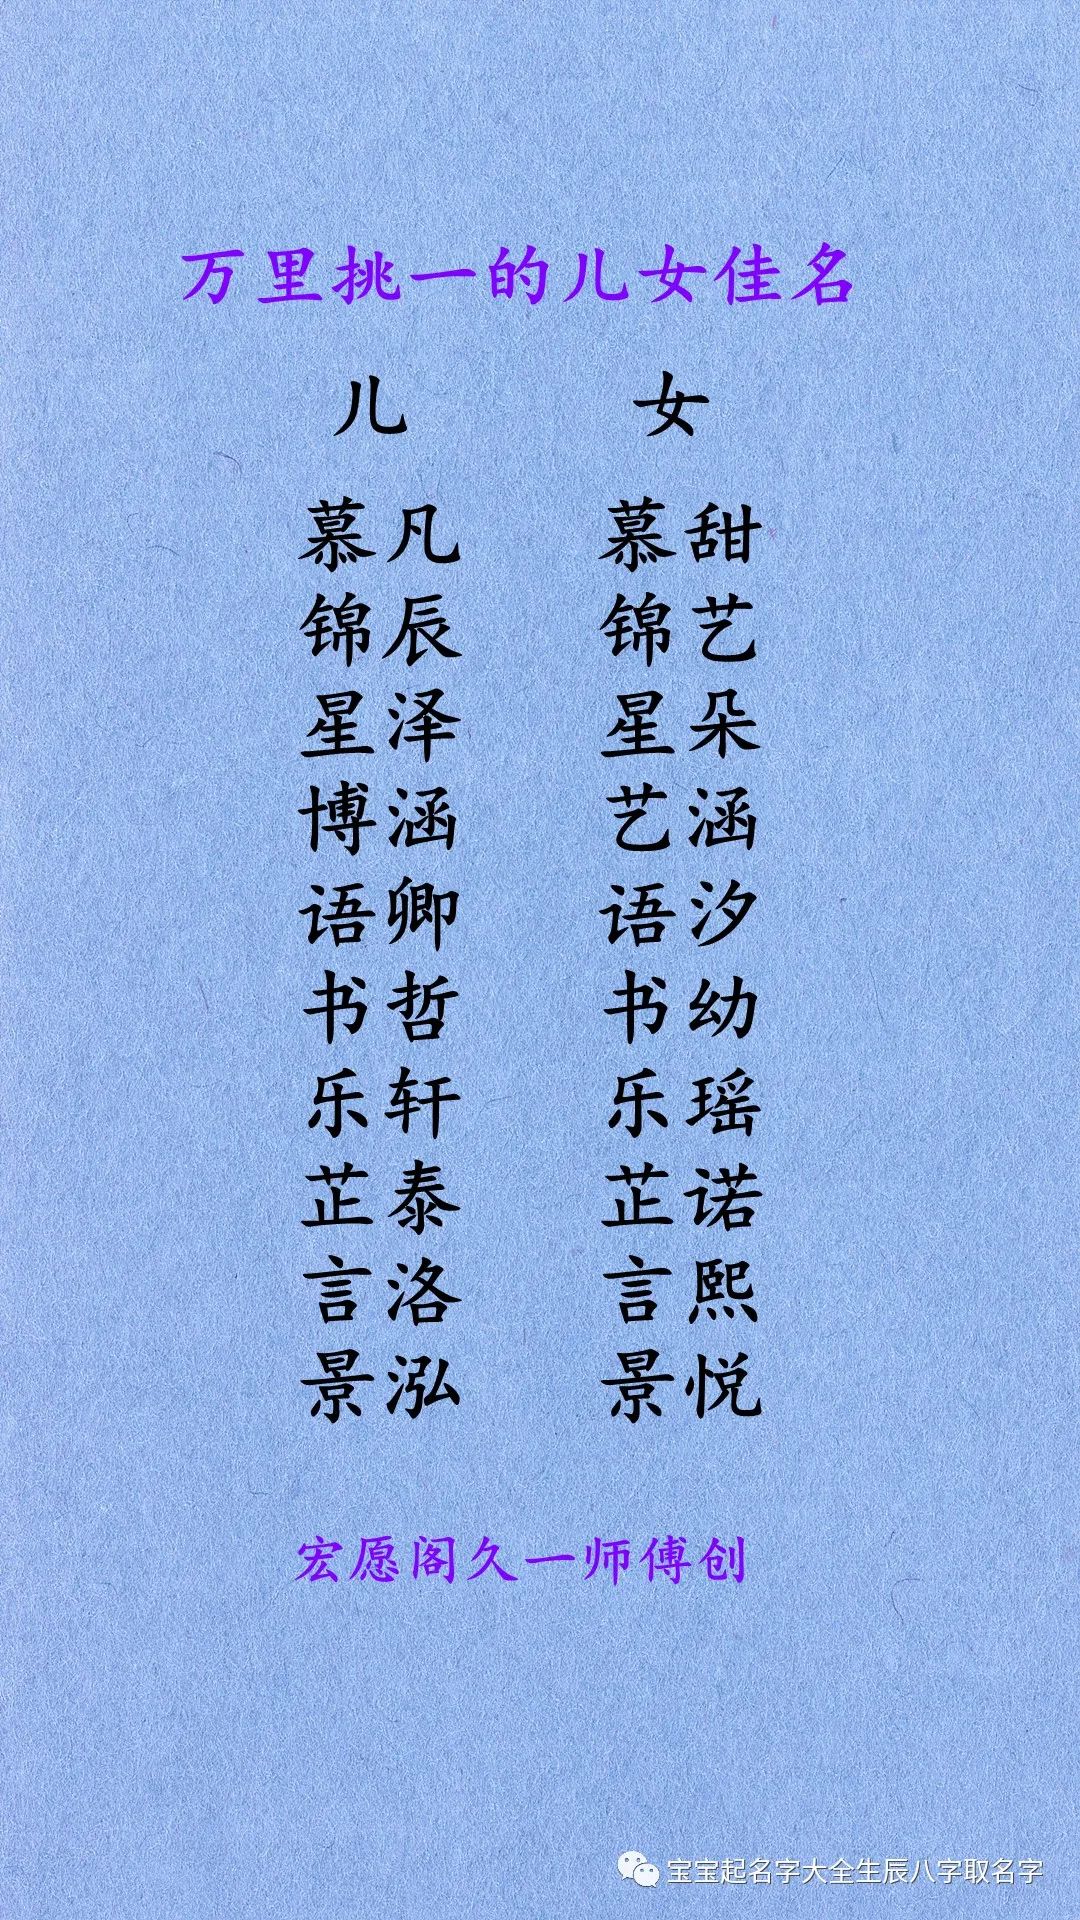 万里挑一的儿女佳名
儿 女
慕凡 慕甜
锦辰 锦艺
星泽 星朵
博涵 艺涵
语卿 语汐
书哲 书幼
乐轩 乐瑶
芷泰 芷诺
言洛 言熙
景泓 景悦
宏愿阁久一师傅创
宝宝起名字大全生辰八字取名字